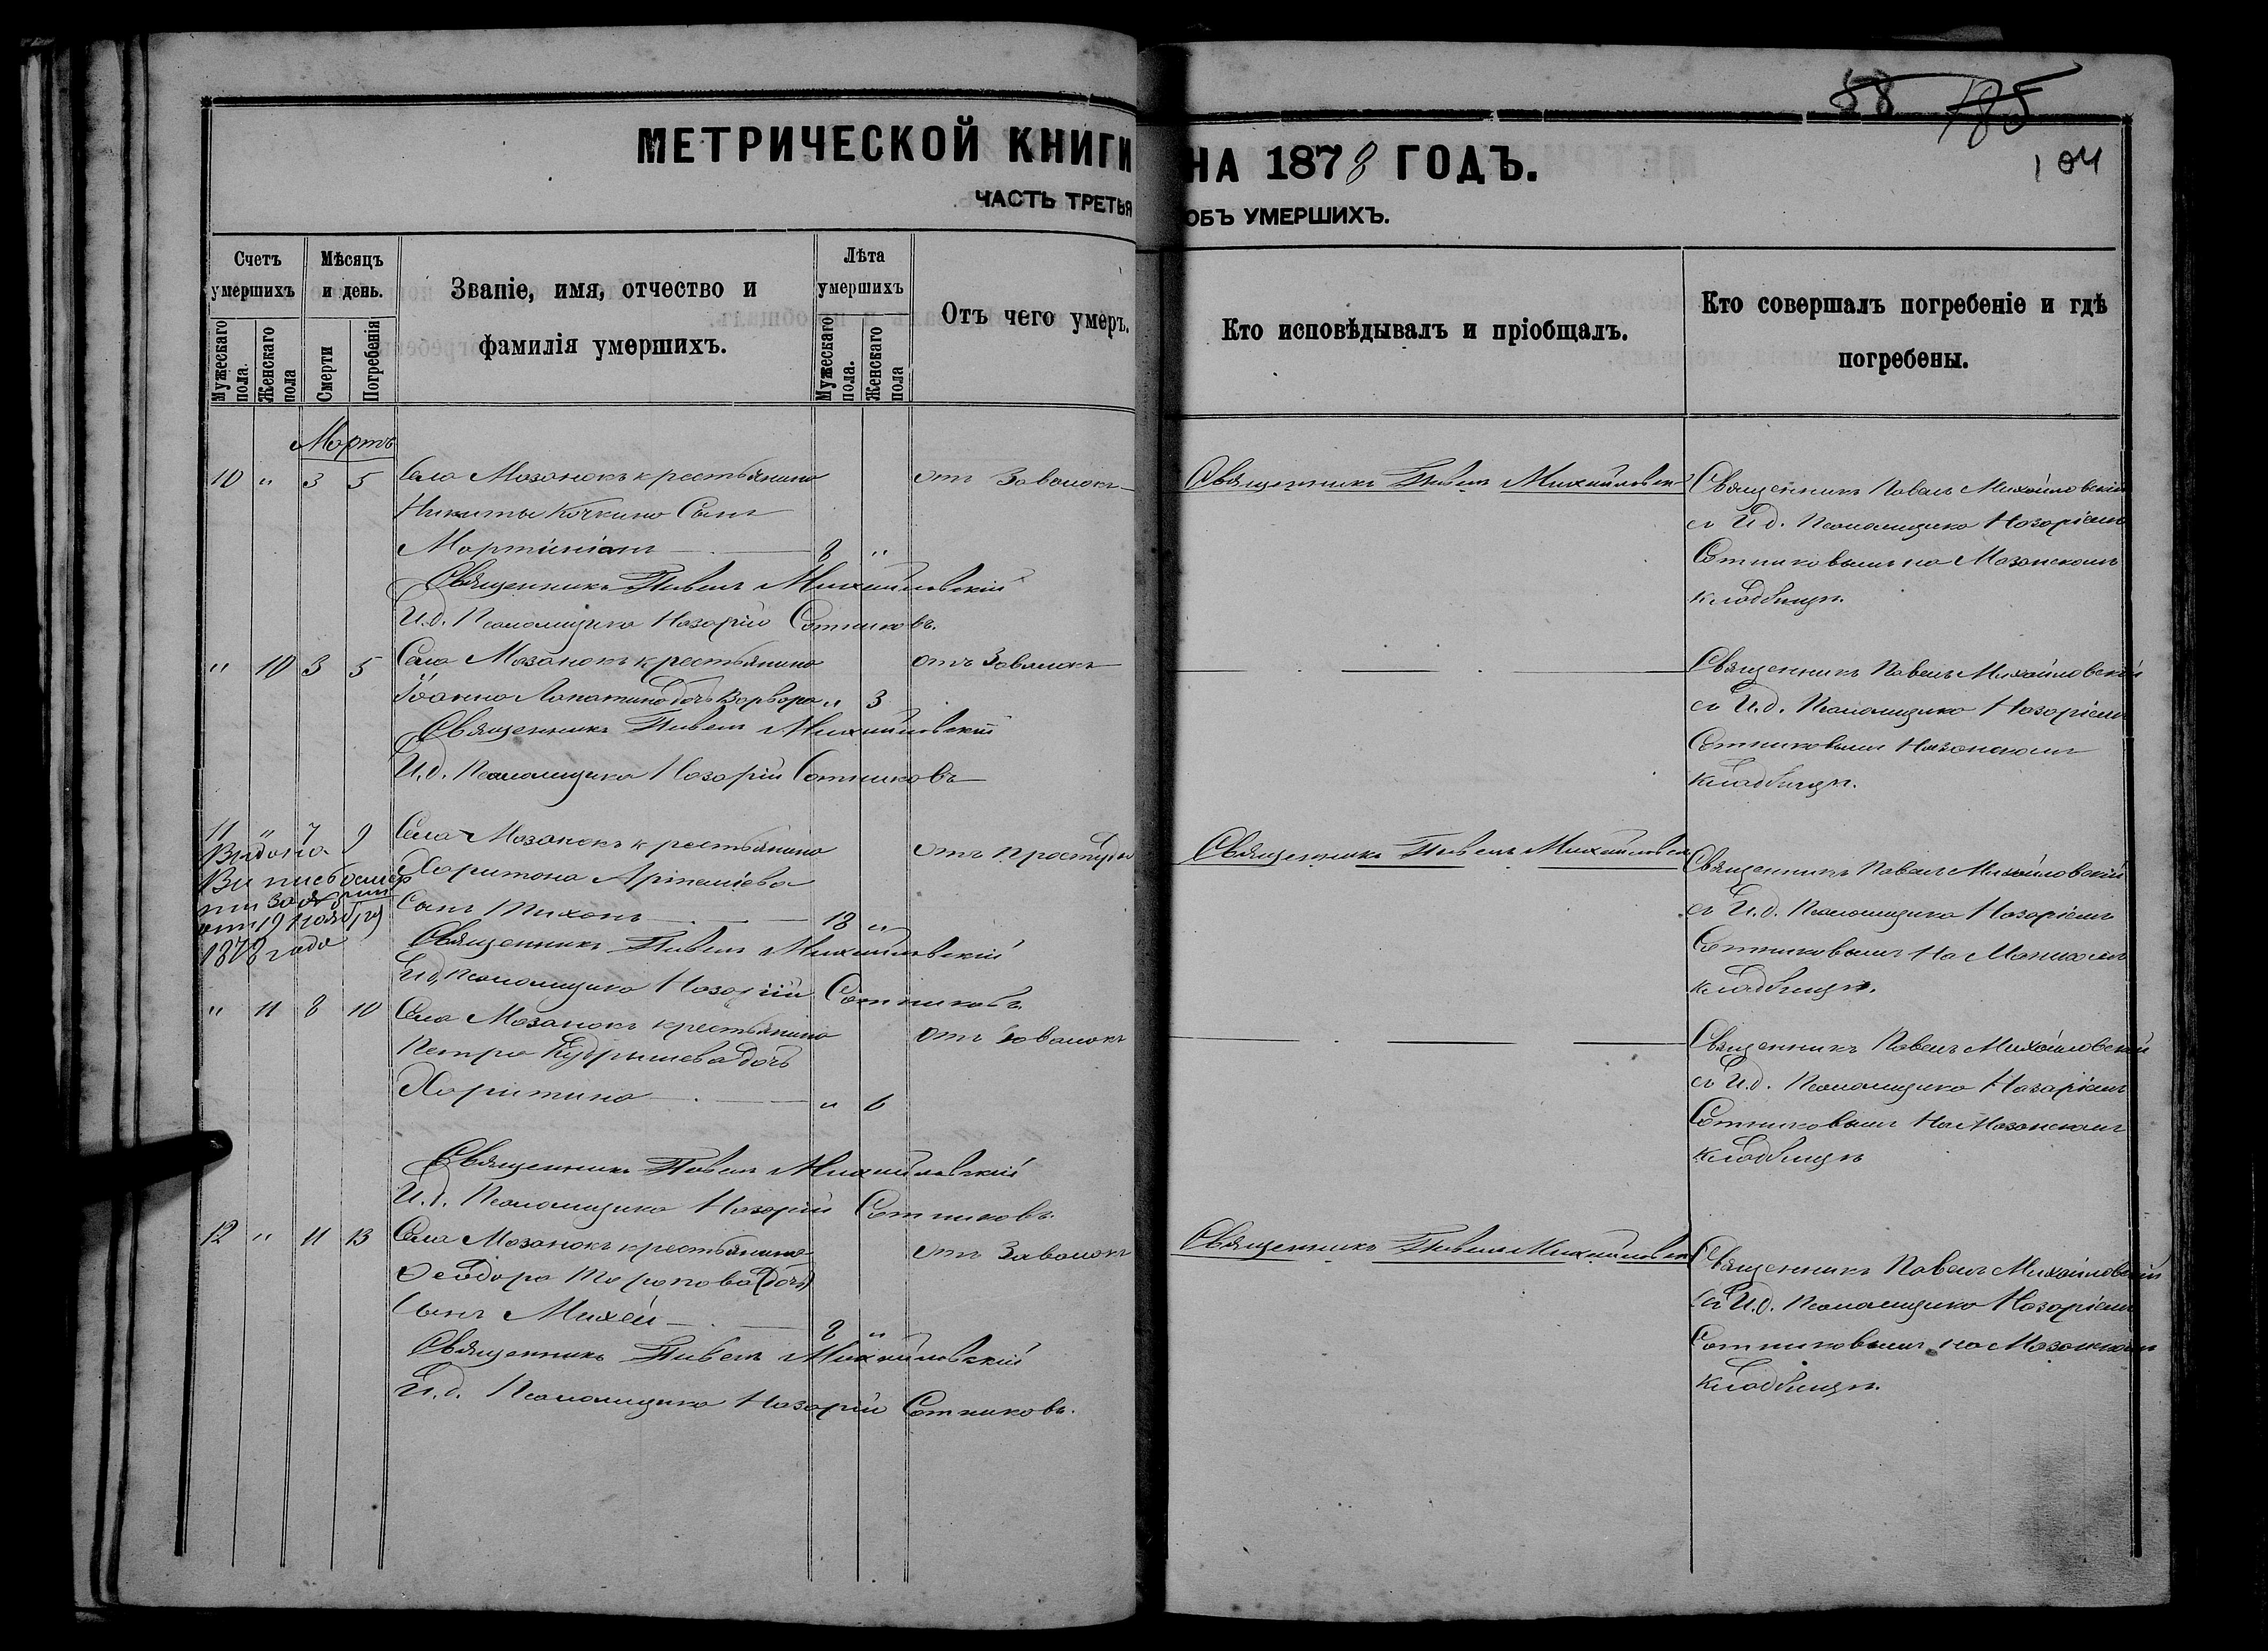 88 185
104
МЕТРИЧЕСКОЙ КНИГИ НА 1878 ГОДЪ.
ЧАСТЬ ТРЕТЬЯ ОБЪ УМЕРШИХЪ.
Счетъ умершихъ
Мужескаго пола.
Женскаго пола
Мѣсяцъ и день.
Смерти
Погребенія
Званіе, имя, отчество и фамилія умершихъ.
Лѣта умершихъ
Мужескаго пола.
Женскаго пола
Отъ чего умеръ.
Кто исповѣдывалъ и пріобщалъ.
Кто совершалъ погребеніе и гдѣ погребены.
Мартъ
10 " 3 5 Села Мазанокъ крестьянина
Никиты Кочкина Сынъ
Мартиніанъ 8 "
отъ Завалокъ
Священникъ Павелъ Михайловскій
Священникъ Павелъ Михайловскій
съ И.д. Псаломщика Назаріемъ
Сотниковымъ на Мазанскомъ
кладбищѣ.
Священникъ Павелъ Михайловскій
И.д. Псаломщика Назарій Сотниковъ.
" 10 3 5 Села Мазанокъ крестьянина
Іоанна Лопатина дочь Варвара " 3
отъ Завалокъ
Священникъ Павелъ Михайловскій
съ И.д. Псаломщика Назаріемъ
Сотниковымъ
кладбищѣ.
Священникъ Павелъ Михайловскій
И.д. Псаломщика Назарій Сотниковъ
11 " 7 9 Села Мазанокъ крестьянина
Харитона
Сынъ Тихонъ 18 "
отъ простуды
отъ 19 ноября
1878 года
Священникъ Павелъ Михайловскій
Священникъ Павелъ Михайловскій
съ И.д. Псаломщика Назаріемъ
Сотниковымъ на
кладбищѣ.
Священникъ Павелъ Михайловскій
И.д. Псаломщика Назарій Сотниковъ
" 11 8 10 Села Мазанокъ крестьянина
Петра Кудрышева дочь
Харитина " 6
отъ Завалокъ
Священникъ Павелъ Михайловскій
съ И.д. Псаломщика Назаріемъ
Сотниковымъ на Мазанскомъ
кладбищѣ
Священникъ Павелъ Михайловскій
И.д. Псаломщика Назарій Сотниковъ.
12 " 11 13 Села Мазанокъ крестьянина
Ѳеодора Торопова (дочь)
Сынъ Михей 8 "
отъ Завалокъ
Священникъ Павелъ Михайловскій
Священникъ Павелъ Михайловскій
съ И.д. Псаломщика Назаріемъ
Сотниковымъ на Мазанскомъ
кладбищѣ.
Священникъ Павелъ Михайловскій
И.д. Псаломщика Назарій Сотниковъ.